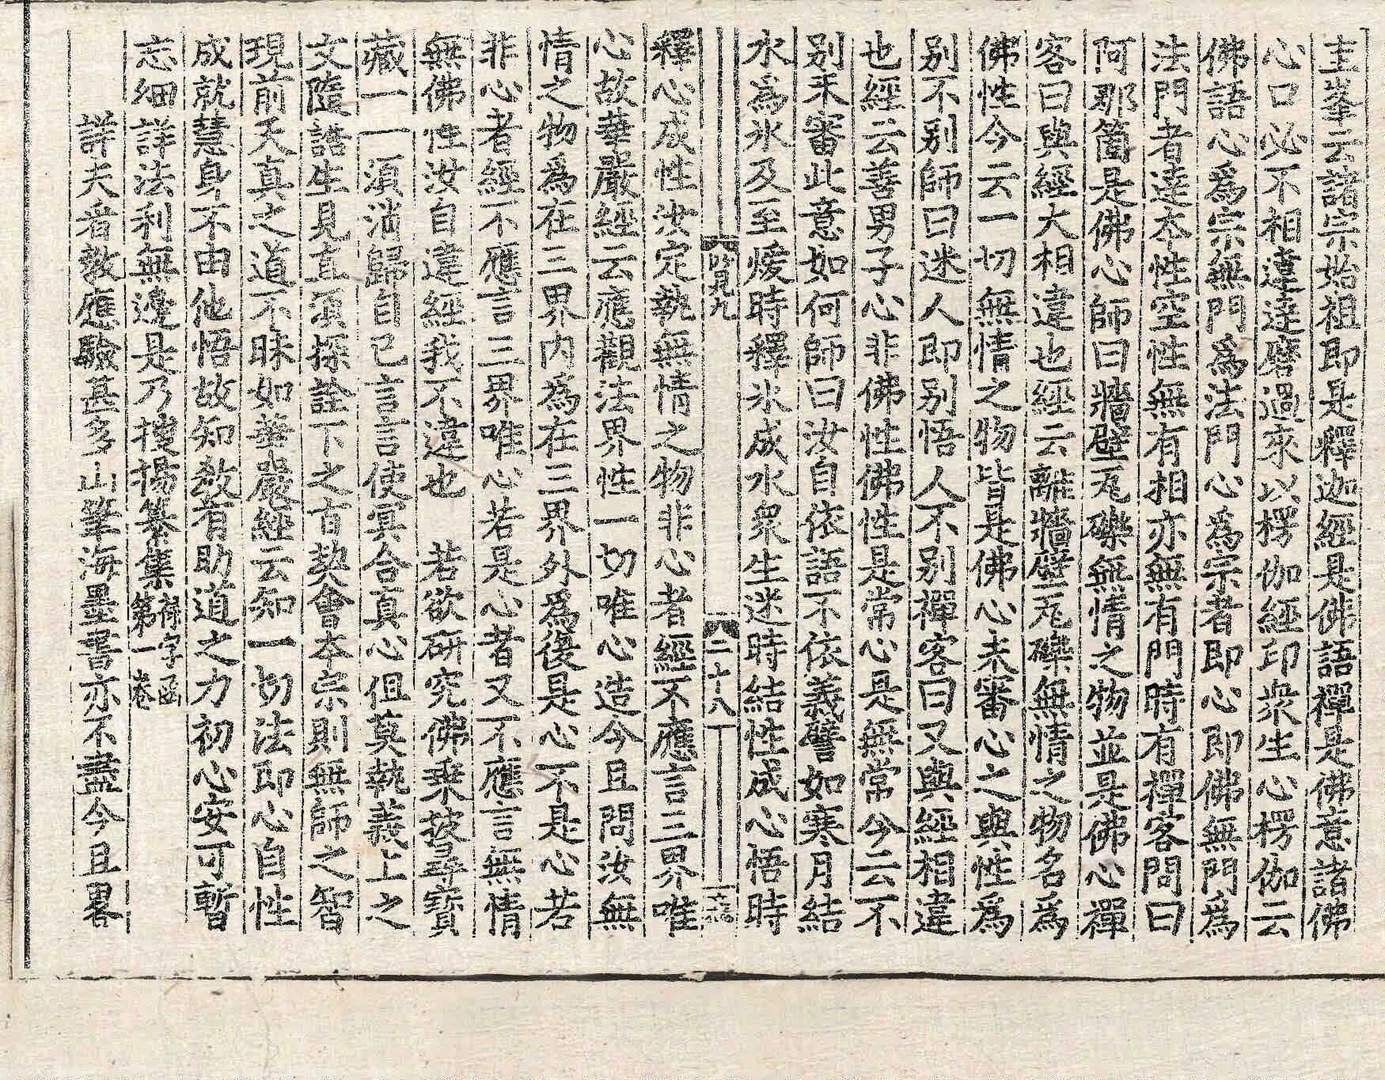 圭峯云諸宗始祖即是釋迦經是佛語禪是佛意諸佛
心口必不相違達磨過來以楞伽經印衆生心楞伽云
佛語心爲宗無門爲法門心爲宗者即心即佛無門爲
法門者達本性空性無有相亦無有門時有禪客問曰
阿那箇是佛心師曰牆壁瓦礫無情之物並是佛心禪
客曰與經大相違也經云離牆壁瓦礫無情之物名爲
佛性今云一切無情之物皆是佛心未審心之與性爲
別不別師曰迷人即別悟人不別禪客曰又與經相違
也經云善男子心非佛性佛性是常心是無常今云不
別未審此意如何師曰汝自依語不依義譬如寒月結
水爲氷及至煖時釋氷成水衆生迷時結性成心悟時
妙見九 二十八
釋心成性汝定執無情之物非心者經不應言三界唯
心故華嚴經云應觀法界性一切唯心造今且問汝無
情之物爲在三界內爲在三界外爲復是心不是心若
非心者經不應言三界唯心若是心者又不應言無情
無佛性汝自違經我不違也 若欲研究佛乘披尋寶
藏一一須消歸自己言言使冥合真心但莫執義上之
文隨語生見直須探詮下之旨契會本宗則無師之智
現前天真之道不昧如華嚴經云知一切法即心自性
成就慧身不由他悟故知敎有助道之力初心安可暫
忘細詳法利無邊是乃搜揚纂集祿字函第一卷
詳夫音敎應驗甚多山筆海墨書亦不盡今且畧